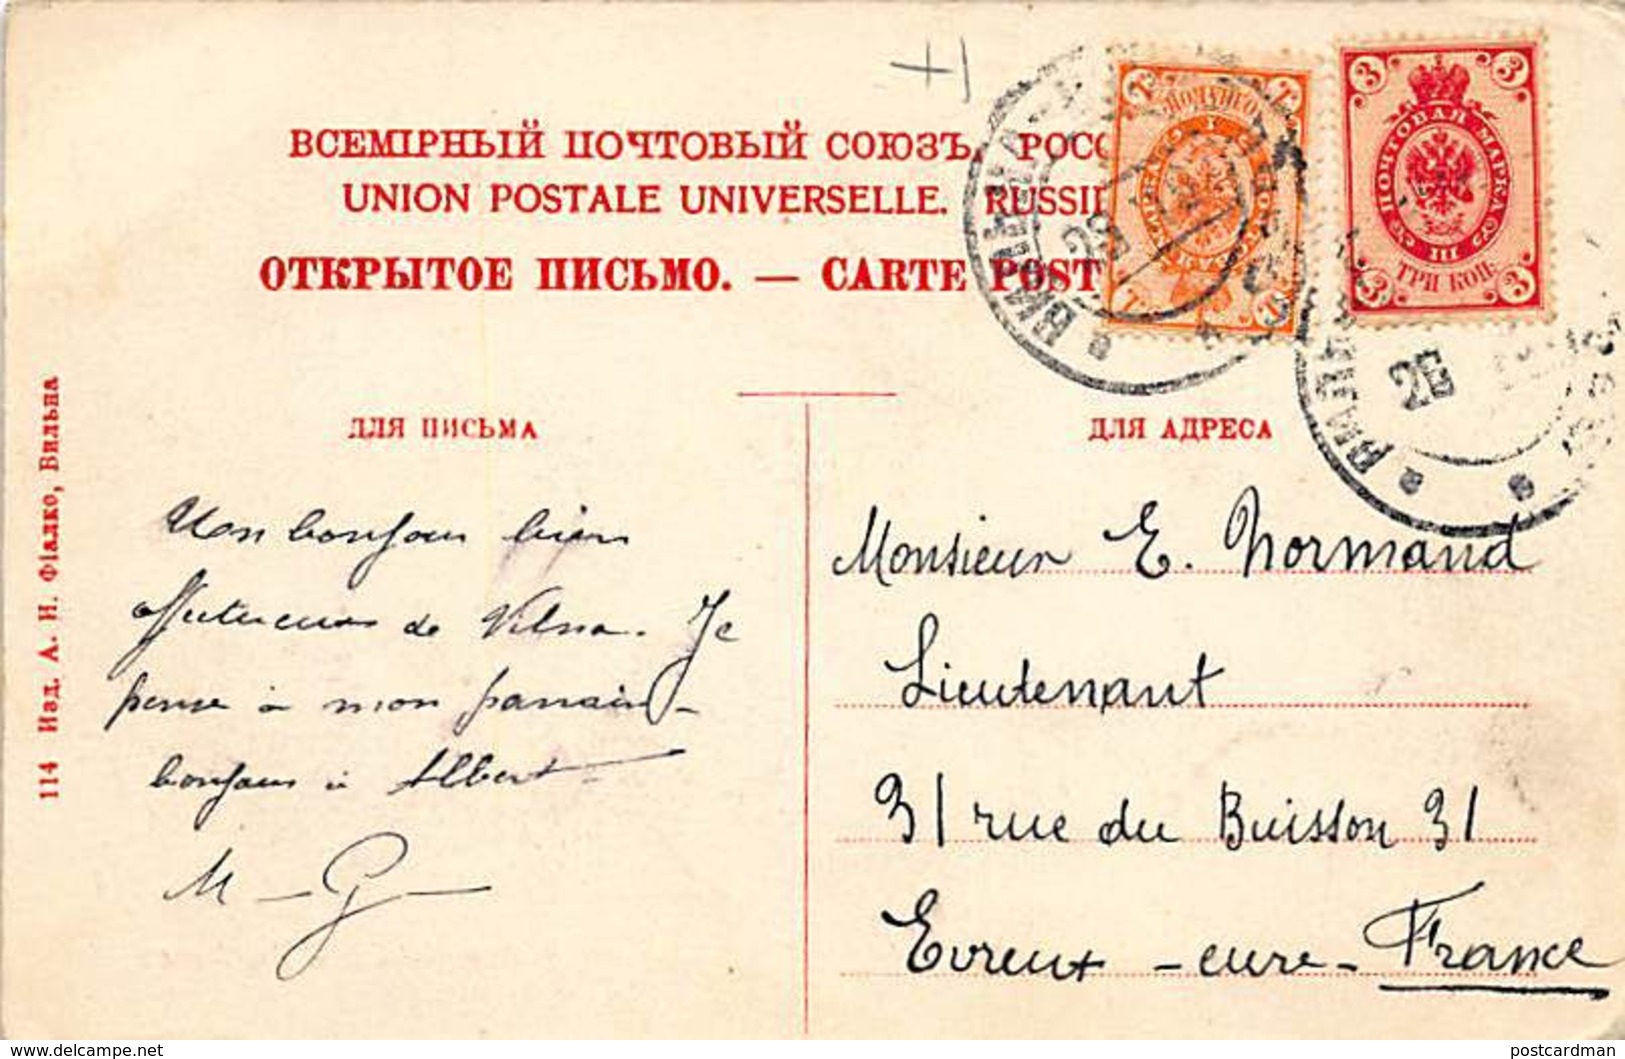 ВСЕМІРНЫЙ ПОЧТОВЫЙ СОЮЗЪ. РОСС
UNION POSTALE UNIVERSELLE. RUSSI
ОТКРЫТОЕ ПИСЬМО. — CARTE POST
3 3
ПОЧТОВАЯ МАРКА
III
ТРИ КОП.
3 3
ВИЛЬНА
26
ДЛЯ ПИСЬМА
ДЛЯ АДРЕСА
Mon bonjour bien
affectueux de Vilna. Je
pense à mon parrain -
bonjour à Albert -
M - G -
Monsieur E. Normand
Lieutenant
31 rue du Buisson 31
Evreux - eure - France
114 Изд. А. Н. Фіалко, Вильна
Delcampe.net
postcardman